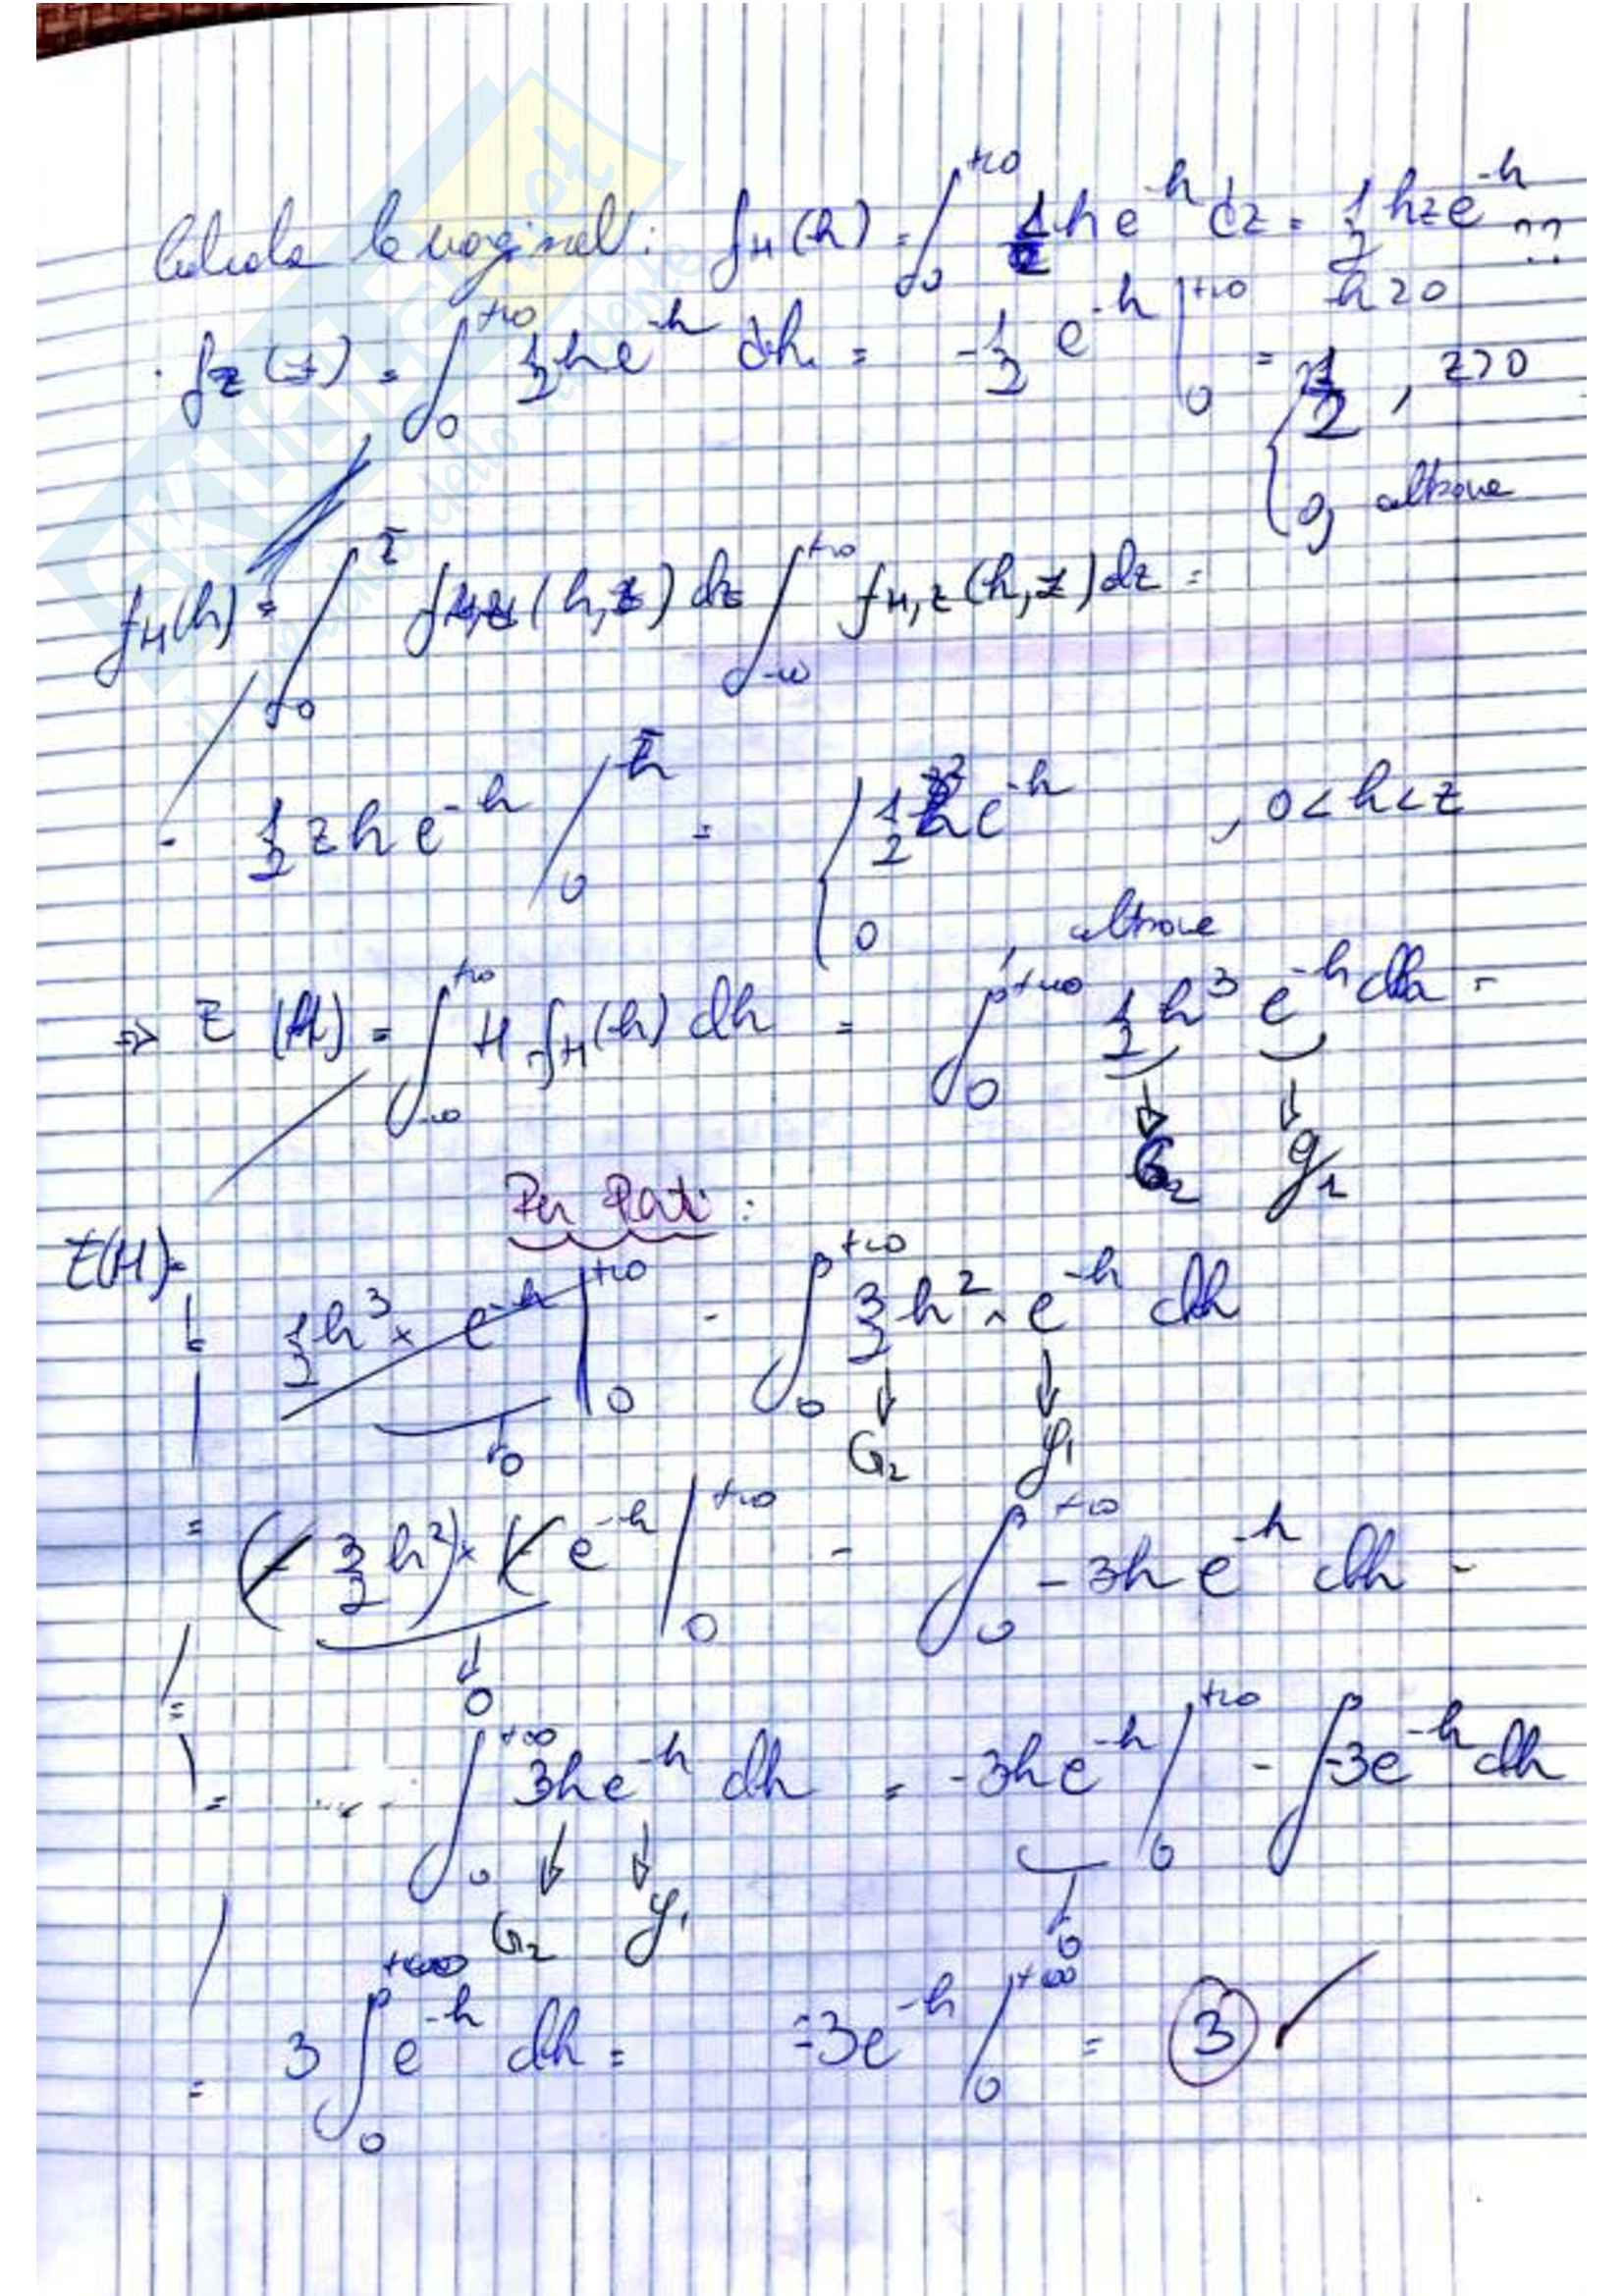 Calcolo le marginali: f_H(h) = ∫_0^{+∞} 1/2 h e^{-h} dz = 1/2 h z e^{-h} ??
h≥0
· f_Z(z) = ∫_0^{+∞} 1/2 h e^{-h} dh = -1/2 e^{-h} |_0^{+∞} = { 1/2 , z>0
0, altrove
f_H(h) = ∫_0^z f_{H,Z}(h,z) dz ∫_{-∞}^{+∞} f_{H,Z}(h,z) dz =
= 1/2 z h e^{-h} |_0^h = { 1/2 h^2 e^{-h} , 0<h<z
0 , altrove
⇒ E(H) = ∫_{-∞}^{+∞} H f_H(h) dh = ∫_0^{+∞} 1/2 h^3 e^{-h} dh =
G_2 g_1
Per Parti:
E(H)=
= 1/2 h^3 × e^{-h} |_0^{+∞} - ∫_0^{+∞} 3/2 h^2 · e^{-h} dh
0 G_2 g_1
= (- 3/2 h^2) × (- e^{-h} |_0^{+∞} - ∫_0^{+∞} -3h e^{-h} dh =
0
=
= .... ∫_0^{+∞} 3h e^{-h} dh = -3h e^{-h} |_0^{+∞} - ∫ -3e^{-h} dh
G_2 g_1 0
= 3 ∫_0^{+∞} e^{-h} dh = -3e^{-h} |_0^{+∞} = 3 ✓